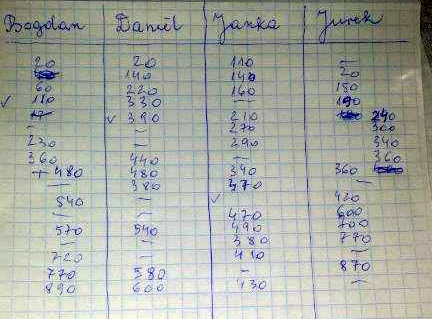 Bogdan Daniel Janka Jurek
20 20 110 —
140 140 20
60 220 160 150
✓ 110 330 — 190
✓ 390 210 240
— — 270 300
230 — 290 340
360 440 — 360
480 480 340 360
— 380 370 —
540 — ✓ 420
— — 470 600
570 540 490 700
— — 380 770
720 — 410 —
770 580 — 870
890 600 430 —